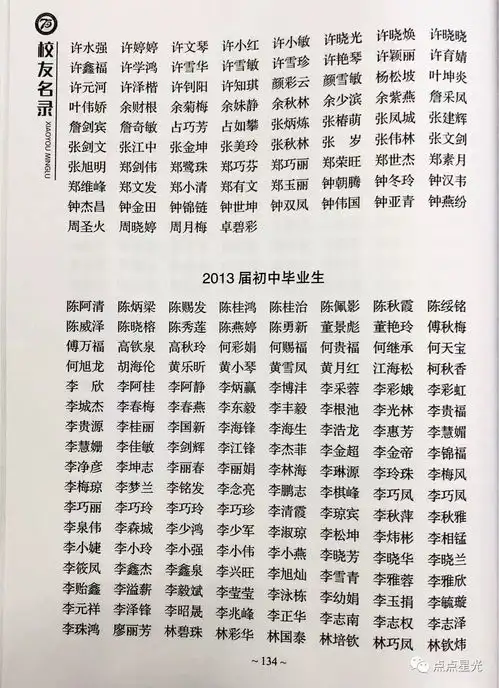 75
校友名录
XIAOYOU MINGLU
许水强 许婷婷 许文琴 许小红 许小敏 许晓光 许晓焕 许晓晓
许鑫福 许学鸿 许雪华 许雪敏 许雪珍 许艳琴 许颖丽 许育婧
许元河 许泽楷 许钊阳 许知琪 颜彩云 颜雪敏 杨松坡 叶坤炎
叶伟娇 余财根 余菊梅 余妹静 余秋林 余少滨 余紫燕 詹采凤
詹剑宾 詹奇敏 占巧芳 占如攀 张炳炼 张椿萌 张凤城 张建辉
张剑文 张江中 张金坤 张美玲 张秋林 张岁 张伟林 张文剑
张旭明 郑剑伟 郑鹭珠 郑巧芬 郑巧丽 郑荣旺 郑世杰 郑素月
郑维峰 郑文发 郑小清 郑有文 郑玉丽 钟朝腾 钟冬玲 钟汉韦
钟杰昌 钟金田 钟锦链 钟世坤 钟双凤 钟伟国 钟亚青 钟燕纷
周圣火 周晓婷 周月梅 卓碧彩
2013届初中毕业生
陈阿清 陈炳梁 陈赐发 陈桂鸿 陈桂治 陈佩影 陈秋霞 陈绥铭
陈威泽 陈晓榕 陈秀莲 陈燕婷 陈勇新 董景彪 董艳玲 傅秋梅
傅万福 高钦泉 高秋玲 何彩娟 何赐福 何贵福 何继承 何天宝
何旭龙 胡海伦 黄乐昕 黄小琴 黄雪凤 黄月红 江海松 柯秋香
李欣 李阿桂 李阿静 李炳赢 李博沣 李采蓉 李彩娥 李彩虹
李城杰 李春梅 李春燕 李东毅 李丰毅 李根池 李光林 李贵福
李贵源 李桂丽 李国新 李海锋 李海生 李浩龙 李惠芳 李慧媚
李慧姗 李佳敏 李剑辉 李江锋 李杰菲 李金超 李金帝 李锦福
李净彦 李坤志 李丽春 李丽娟 李林海 李琳源 李玲珠 李梅风
李梅琼 李梦兰 李铭发 李念亮 李鹏志 李棋峰 李巧凤 李巧凤
李巧丽 李巧玲 李巧玲 李巧珍 李清霞 李琼宾 李秋萍 李秋雅
李泉伟 李森城 李少鸿 李少军 李淑琼 李松坤 李炜彬 李相锰
李小婕 李小玲 李小强 李小伟 李小燕 李晓芳 李晓华 李晓兰
李筱凤 李鑫杰 李鑫泉 李兴旺 李旭灿 李雪青 李雅蓉 李雅欣
李贻鑫 李溢薪 李毅斌 李莹莹 李泳栋 李幼娟 李玉捐 李毓璇
李元祥 李泽锋 李昭晟 李兆峰 李正华 李志南 李志权 李志泽
李珠鸿 廖丽芳 林碧珠 林彩华 林国泰 林培钦 林巧凤 林钦炜
~134~
点点星光